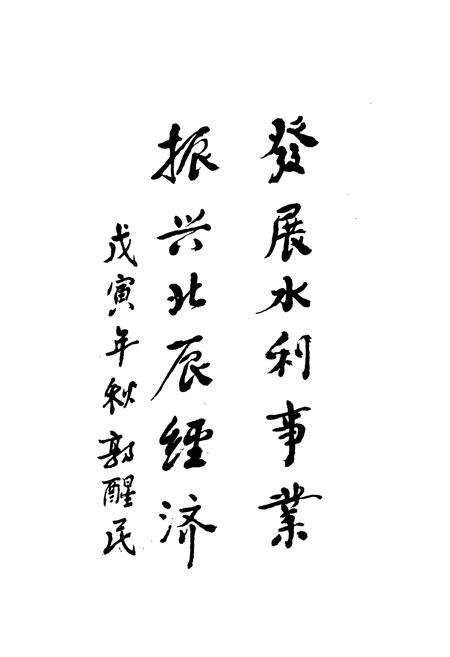 發展水利事業
振兴北辰經济
戊寅年秋郭醒民